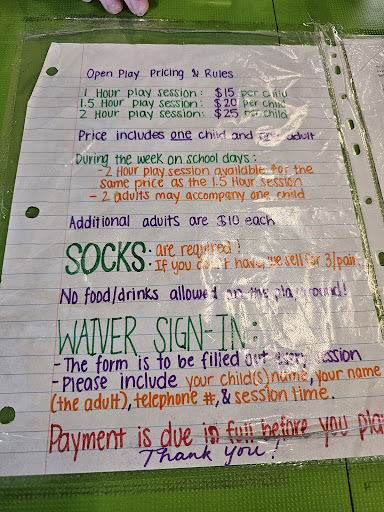 Open Play Pricing & Rules
1 Hour play session: $15 per child
1.5 Hour play session: $20 per child
2 Hour play session: $25 per child
Price includes one child and one adult
During the week on school days:
- 2 Hour play session available for the
same price as the 1.5 Hour session
- 2 adults may accompany one child
Additional adults are $10 each
SOCKS: are required!
: If you don't have, we sell for 3/pair
No food/drinks allowed on the playground!
WAIVER SIGN-IN:
- The form is to be filled out every session
- Please include your child(s) name, your name
(the adult), telephone #, & session time.
Payment is due in full before you play
Thank you!